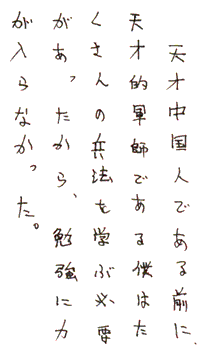 天才中国人である前に、
天才的軍師である僕はた
くさんの兵法も学ぶ必要
があったから、勉強に力
が入らなかった。